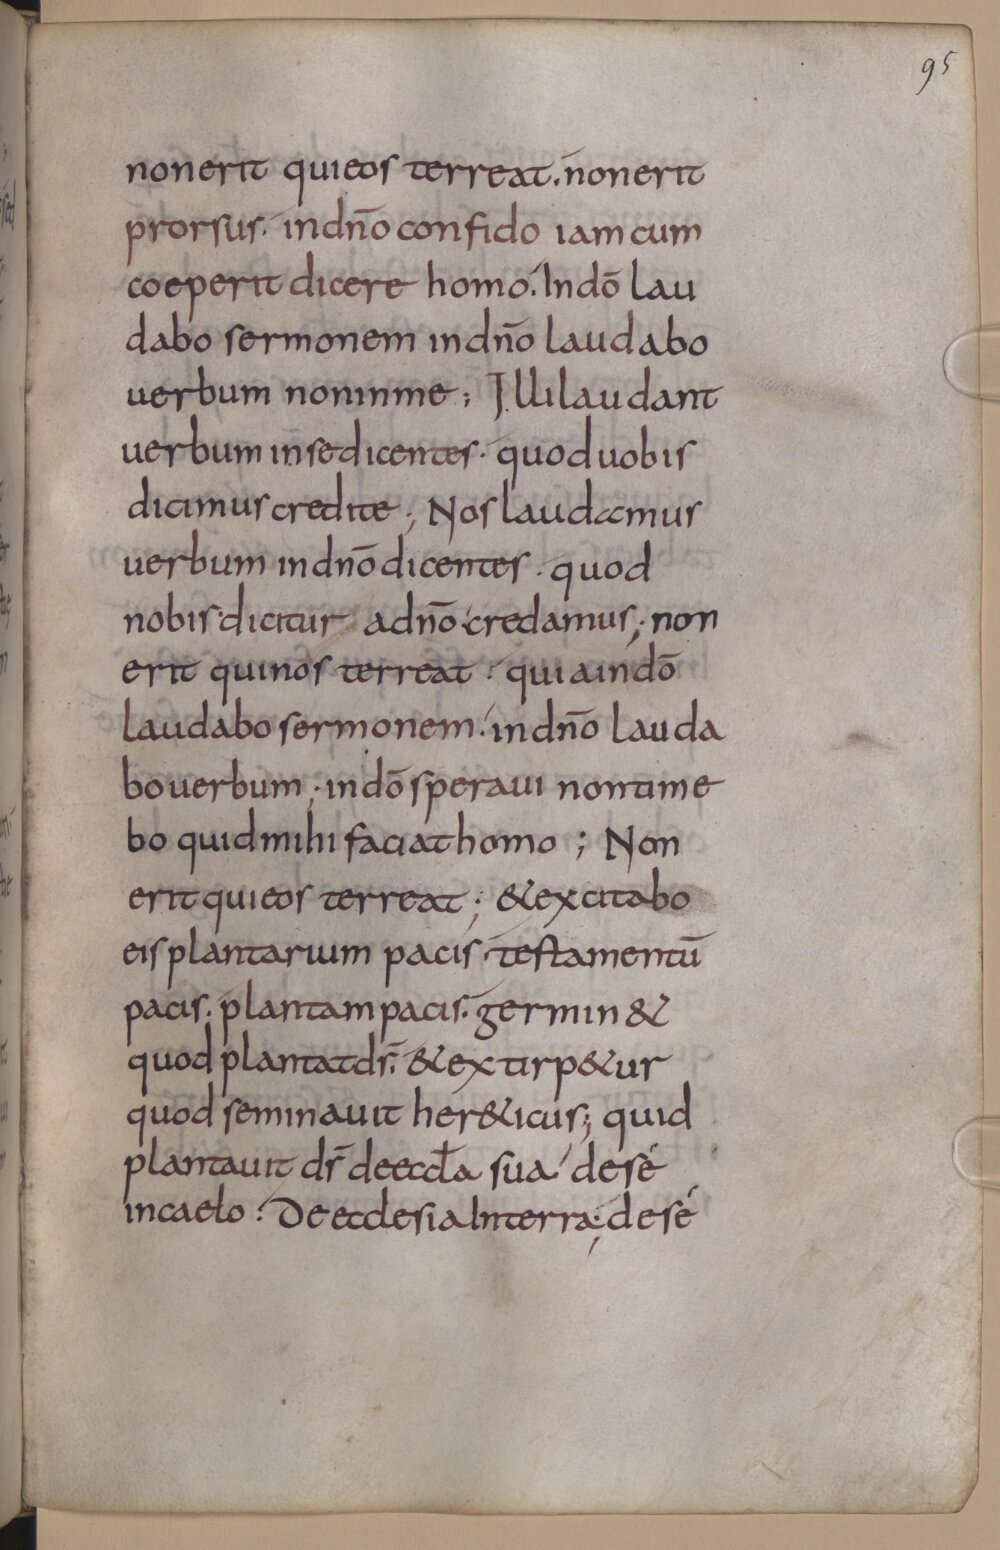 95
nonerit quieos terreat. nonerit
prorsus. indn̄o confido iamcum
coeperit dicere homo. Indō lau
dabo sermonem indn̄o laudabo
uerbum noninme; Illi laudant
uerbum insedicentes. quoduobis
dicimus credite; Nos laudamus
uerbum indn̄o dicentes. quod
nobis dicitur adn̄o credamus; non
erit quinos terreat. quiaindō
laudabo sermonem. indn̄o lauda
bo uerbum; indō speraui nontime
bo quid mihi faciat homo; Non
erit quieos terreat; & excitabo
eis plantarium pacis. testamentū
pacis. plantam pacis. germin&
quod plantat dr̄. & extirp&ur
quod seminauit her&icus; quid
plantauit dr̄ deeccła sua de sé
incaelo. De ecclesia Interra; de sé